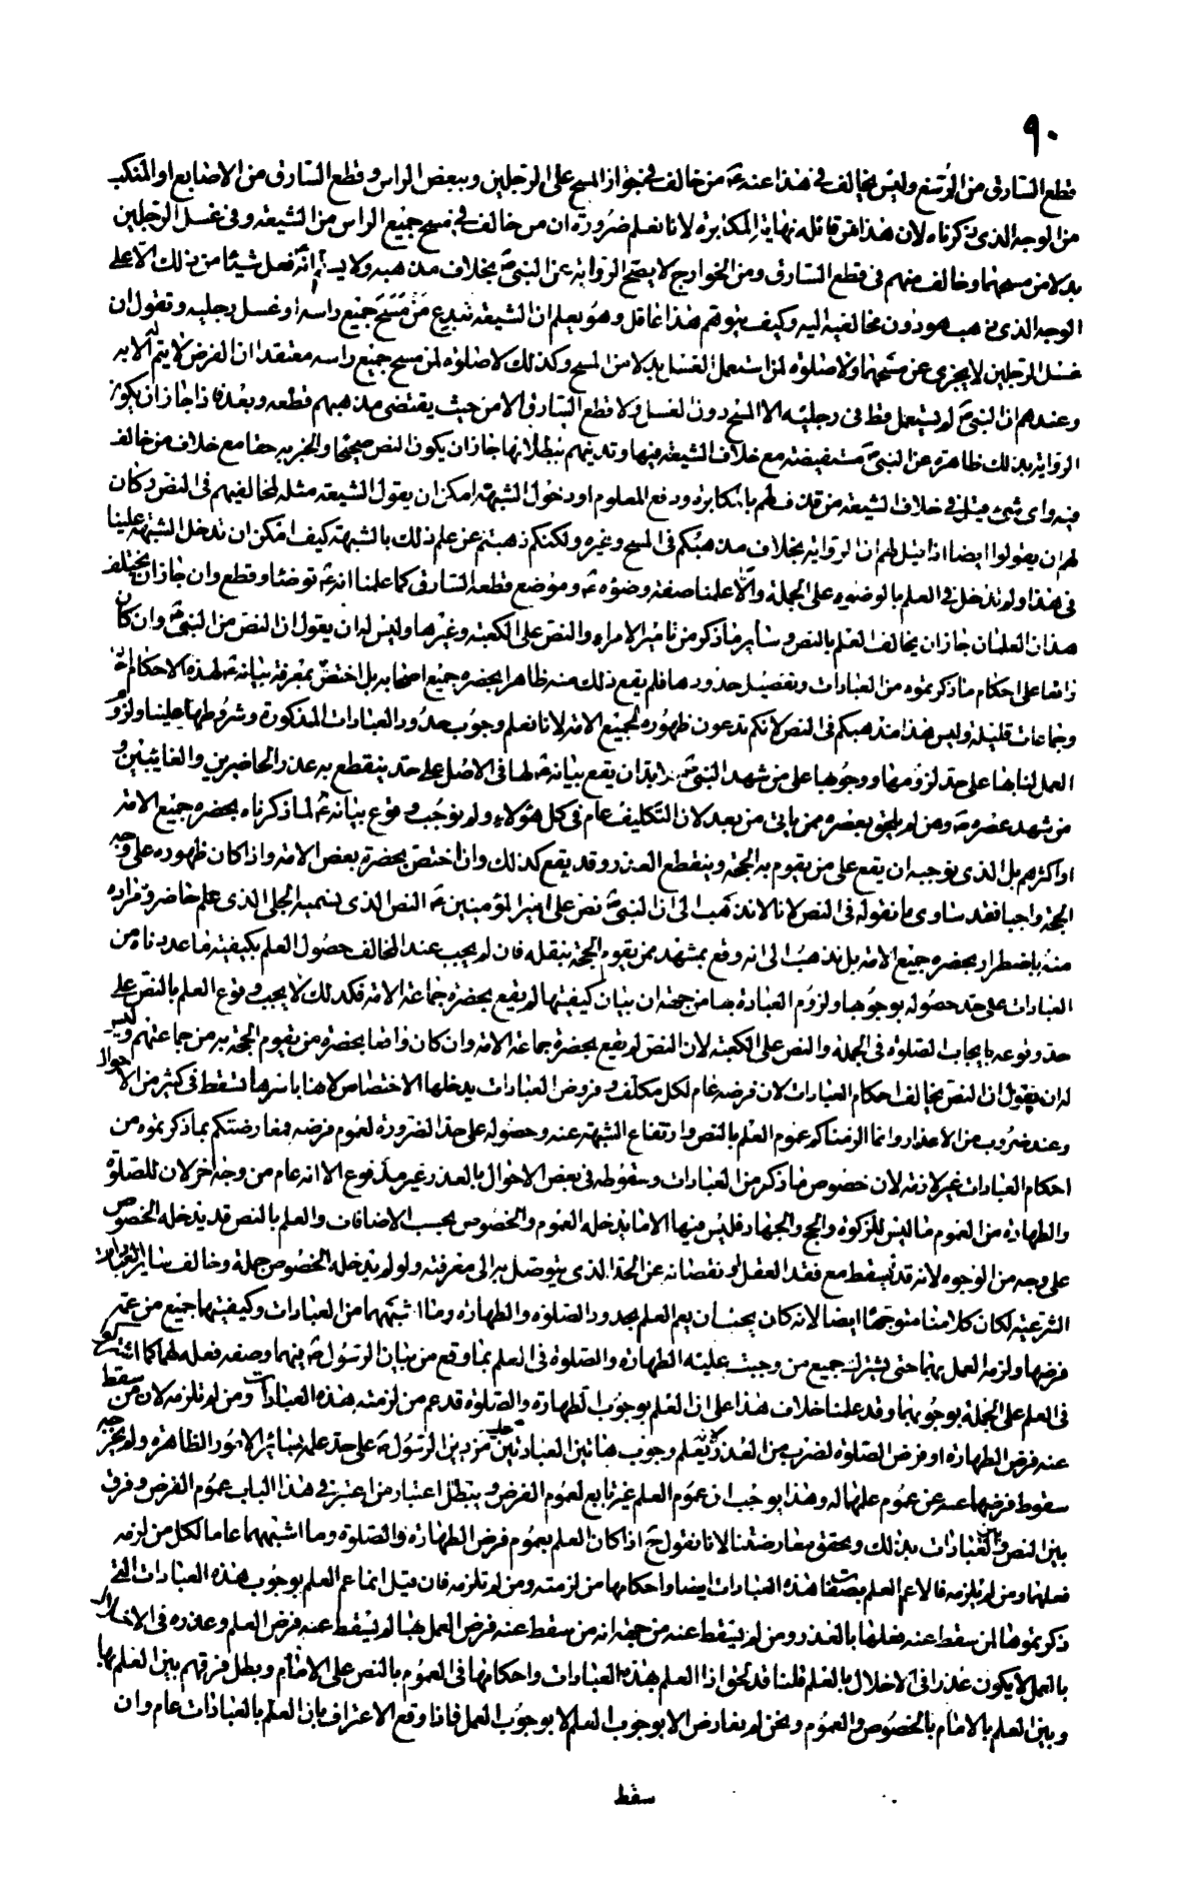 ٩٠
قطع السارق من الرسغ وليس يخالف في هذا عنه ع من خالف في جواز المسح على الرجلين وببعض الراس وقطع السارق من الاصابع او المنكب
من الوجه الذي ذكرناه لان هذا من قائله نهاية المكابرة لانا نعلم ضرورة ان من خالف في مسح جميع الراس من الشيعة وفي غسل الرجلين
بدلا من مسحهما وخالف منهم في قطع السارق ومن الخوارج لا يصحح الرواية عن النبي ص بخلاف مذهبه ولا انه فعل شيئا من ذلك الا على
الوجه الذي ذهب هو دون مخالفيه اليه وكيف يتوهم هذا عاقل وهو يعلم ان الشيعة تبدع من مسح جميع راسه او غسل رجليه وتقول ان
غسل الرجلين لا يجزي عن مسحهما ولا صلوة لمن استعمل الغسل بدلا من المسح وكذلك لا صلوة لمن مسح جميع راسه معتقدا ان الفرض لا يتم الا به
وعندهم ان النبي ص لم يستعمل قط في رجليه الا المسح دون الغسل ولا قطع السارق الا من حيث يقتضي مذهبهم قطعه وبعد فاذا جاز ان يكون
الرواية بذلك ظاهرة عن النبي ص مستفيضة مع خلاف الشيعة فيها وتدينهم ببطلانها جاز ان يكون النص صحيحا والخبر به حقا مع خلاف من خالف
فيه واي شيء قيل في خلاف الشيعة من قذفهم بالمكابرة ودفع المعلوم او دخول الشبهة امكن ان يقول الشيعة مثله لمخالفيهم في النص وكان
لهم ان يقولوا ايضا اذا قيل لهم ان الرواية بخلاف مذهبكم في المسح وغيره ولكنكم ذهبتم عن علم ذلك بالشبهة كيف امكن ان تدخل الشبهة علينا
في هذا ولم تدخل في العلم بالوضوء على الجملة والا علمنا صفة وضوئه ع وموضع قطعه السارق كما علمنا انه ع توضا وقطع وان جاز ان يختلف
هذان العلمان جاز ان يخالف العلم بالنص وساير ما ذكر من تامير الامراء والنص على الكعبة وغيرها وليس له ان يقول ان النص من النبي ص وان كان
واقعا على احكام ما ذكرتموه من العبادات وتفصيل حدودها فلم يقع ذلك منه ظاهرا بحضرة جميع اصحابه بل اختص بمعرفة بيانه ع لهذه الاحكام
وجماعات قليلة وليس هذا مذهبكم في النص لانكم تدعون ظهوره لجميع الامة لانا نعلم وجوب حدود العبادات المذكورة وشروطها علينا ولزوم
العمل لنا بها على حد لزومها ووجوبها على من شهد النبي ص ان يقع بيانه ع لها في الاصل على حد ينقطع به عذر الحاضرين والغائبين و
من شهد عصره ع ومن لم يلحق بعصره ممن ياتي من بعد لان التكليف عام في كل هؤلاء ولم نوجب وقوع بيانه ع لما ذكرناه بحضرة جميع الامة
او اكثرهم بل الذي نوجبه ان يقع على من يقوم به الحجة وينقطع العذر وقد يقع كذلك وان اختص بحضرة بعض الامة واذا كان ظهوره على وجه
الحجة واجبا فقد ساوى ما نقوله في النص لانا لا نذهب الى ان النبي ص نص على امير المؤمنين ع النص الذي يسميه الجلي الذي علم حاضروه مراده
منه باضطرار بحضرة جميع الامة بل نذهب الى انه وقع بمشهد ممن يقوم الحجة بنقله فان لم يجب عند المخالف حصول العلم بكيفية ما عددناه من
العبادات على حد حصوله بوجوبها ولزوم العبادة بها من جهة ان بيان كيفيتها لم يقع بحضرة جماعة الامة فكذلك لا يجب وقوع العلم بالنص على
حد وقوعه بايجاب الصلوة في الجملة والنص على الكعبة لان النص لم يقع بحضرة جماعة الامة وان كان واقعا بحضرة من يقوم الحجة به من جماعتهم وليس
له ان يقول ان النص يخالف احكام العبادات لان فرضه عام لكل مكلف وفروض العبادات يدخلها الاختصاص لانها باسرها تسقط في كثير من الاحوال
وعند ضروب من الاعذار وانما الزمناكم عموم العلم بالنص وارتفاع الشبهة عنه وحصوله على حد الضرورة لعموم فرضه فمعارضتكم بما ذكرتموه من
احكام العبادات غير لازمة لان خصوص ما ذكر من العبادات وسقوطه في بعض الاحوال بالعذر غير مدفوع الا انه عام من وجه اخر لان للصلوة
والطهارة من العموم ما ليس للزكوة والحج والجهاد فليس فيها الا ما يدخله العموم والخصوص بحسب الاضافات والعلم بالنص قد يدخله الخصوص
على وجه من الوجوه لانه قد يسقط مع فقد العقل او نقصانه عن الحد الذي يتوصل به الى معرفته ولو لم يدخله الخصوص جملة وخالف ساير العبادات
الشرعية لكان كلامنا متوجها ايضا لانه كان يجب ان يعم العلم بحدود الصلوة والطهارة وما اشبههما من العبادات وكيفيتها جميع من عمه
فرضها ولزمه العمل بهما حتى يشترك جميع من وجبت عليه الطهارة والصلوة في العلم بما وقع من بيان الرسول ص فيهما وصفة فعله لهما كما اشتركوا
في العلم على الجملة بوجوبهما وقد علمنا خلاف هذا على ان العلم بوجوب الطهارة والصلوة قد عم من لزمته هذه العبادات ومن لم تلزمه لان من سقط
عنه فرض الطهارة او فرض الصلوة لضرب من العذر يعلم وجوب هاتين العبادتين من دين الرسول ص على حد علمه بساير الامور الظاهرة ولم يخرجه
سقوط فرضهما عنه عن عموم علمهما له وهذا يوجب ان عموم العلم غير تابع لعموم الفرض ويبطل اعتبار من اعتبر في هذا الباب عموم الفرض وفرق
بين النص والعبادات بذلك ويحقق معارضتنا لانا نقول ح اذا كان العلم بعموم فرض الطهارة والصلوة وما اشبههما عاما لكل من لزمه
فعلهما ومن لم يلزمه فالا عم العلم بصفة هذه العبادات ايضا واحكامها من لزمته ومن لم تلزمه فان قيل انما عم العلم بوجوب هذه العبادات التي
ذكرتموها لمن سقط عنه فعلها بالعذر ومن لم يسقط عنه من جهة انه من سقط عنه فرض العمل بها لم يسقط عنه فرض العلم وعذره في الاخلال
بالعمل لا يكون عذرا في الاخلال بالعلم قلنا قد لحق اذا العلم بهذه العبادات واحكامها في العموم بالنص على الامام وبطل فرقهم بين العلم بها
وبين العلم بالامام بالخصوص والعموم ونحن لم نعارض الا بوجوب العلم لا بوجوب العمل فاذا وقع الاعتراف بان العلم بالعبادات عام وان
سقط